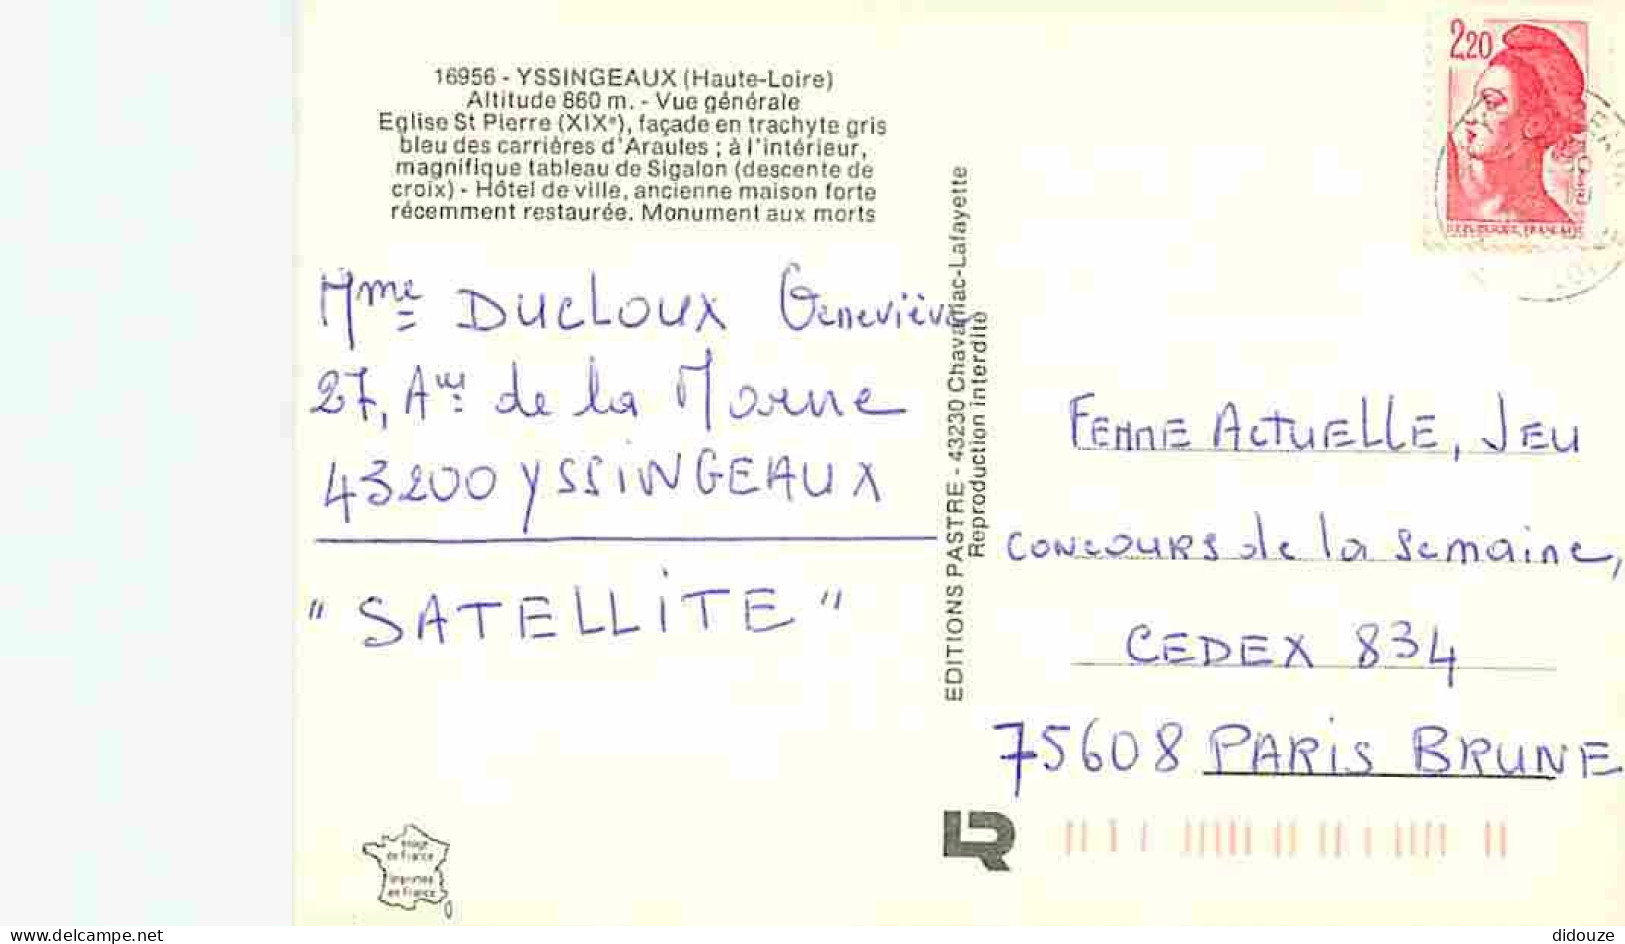 16956 - YSSINGEAUX (Haute-Loire)
Altitude 860 m. - Vue générale
Eglise St Pierre (XIXe), façade en trachyte gris
bleu des carrières d'Araules ; à l'intérieur,
magnifique tableau de Sigalon (descente de
croix) - Hôtel de ville, ancienne maison forte
récemment restaurée. Monument aux morts
Mme DUCLOUX Geneviève
27, Aue de la Marne
43200 YSSINGEAUX
"SATELLITE"
EDITIONS PASTRE - 43230 Chavaniac-Lafayette
Reproduction interdite
2,20
REPUBLIQUE FRANÇAISE
FEMME ACTUELLE, JEU
CONCOURS de la semaine,
CEDEX 834
75608 PARIS BRUNE
Image
de France
Imprimée
en France
LR
www.delcampe.net
didouze